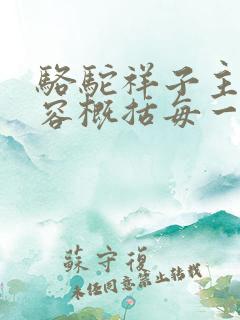 駱駝祥子主
容概括每一
蘇守復
未经同意禁止转载